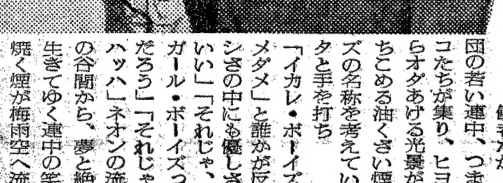 団の若い連中、つま
コたちが集り、ヒヨ
らオダあげる光景が
ちこめる油くさい煙
ズの名称を考えてい
タと手を打ち
「イカレ・ボーイズ
メダメ」と誰かが反
シさの中にも優しさ
いい」「それじゃ、
ガール・ボーイズっ
だろう」「それじゃ
ハッハ」ネオンの流
の谷間から、夢と絶
生きてゆく連中の笑
焼く煙が梅雨空へ流